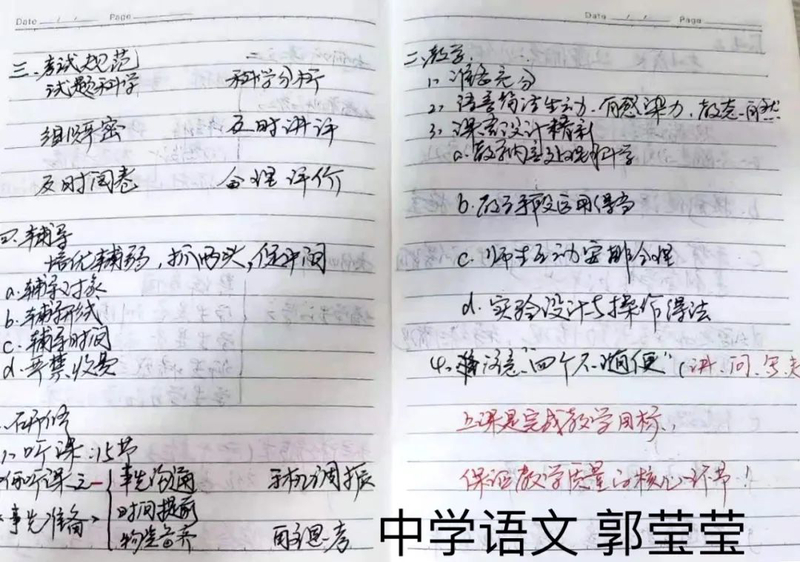 Date / / Page
三、考试规范
试题科学 科学分析
组织严密 及时讲评
及时阅卷 合理评价
四、辅导
培优辅弱,抓两头,促中间
a.辅导对象
b.辅导形式
c.辅导时间
d.严禁收费
研修
1、听课:15节
听课之 事先沟通 手机调振
事先准备 时间提前
物笔备齐 用心思考
Date / / Page
二、教学
1、准备充分
2、语言简洁生动、有感染力,教态自然
3、课堂设计精彩
a.教学内容处理科学
b.教学手段运用得当
c.师生互动安排合理
d.实验设计与操作得法
4、注意“四个不随便”(讲、问、写、走
上课是完成教学目标、
保证教学质量的核心环节!
中学语文 郭莹莹